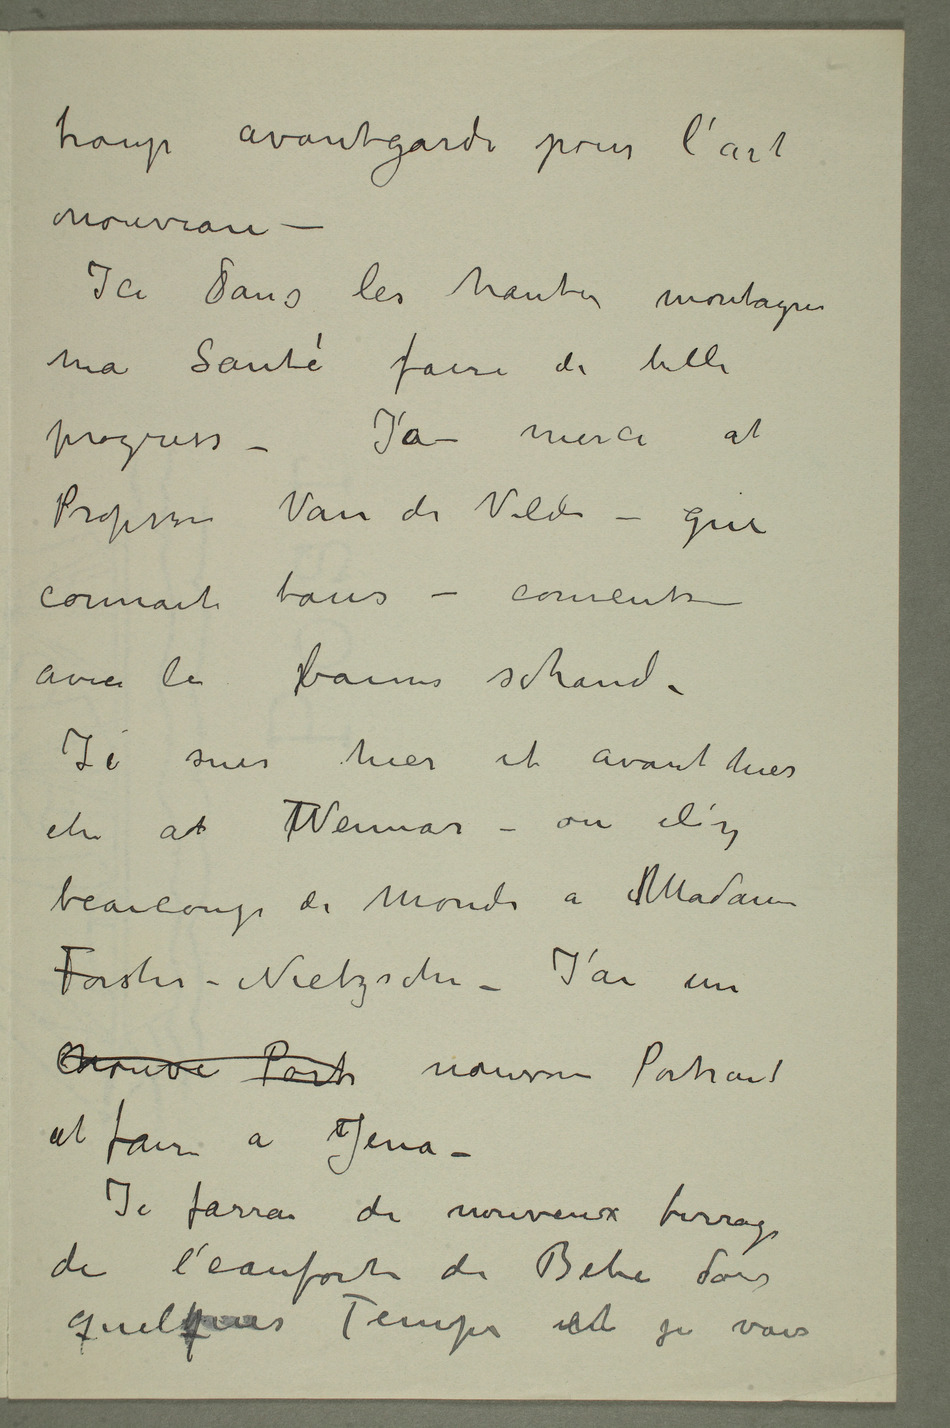 troup avantgarde pour l'art
nouveau —
Ici dans les hautes montagnes
ma Santé faire de belle
progress – J'a merci at
Professer Van de Velde – que
connaite tous – comente
avec le bains schaud.
Je suis hier et avant hier
ete at Weimar – ou il'y
beaucoup de Monde a Madame
Forster-Nietzsche – J'ai un
nouve Portr nouveau Portrait
at faire a Jena –
Je farrai de nouveux tirrage
de l'eauforte de Bebe dans
quelques Temps et je vous